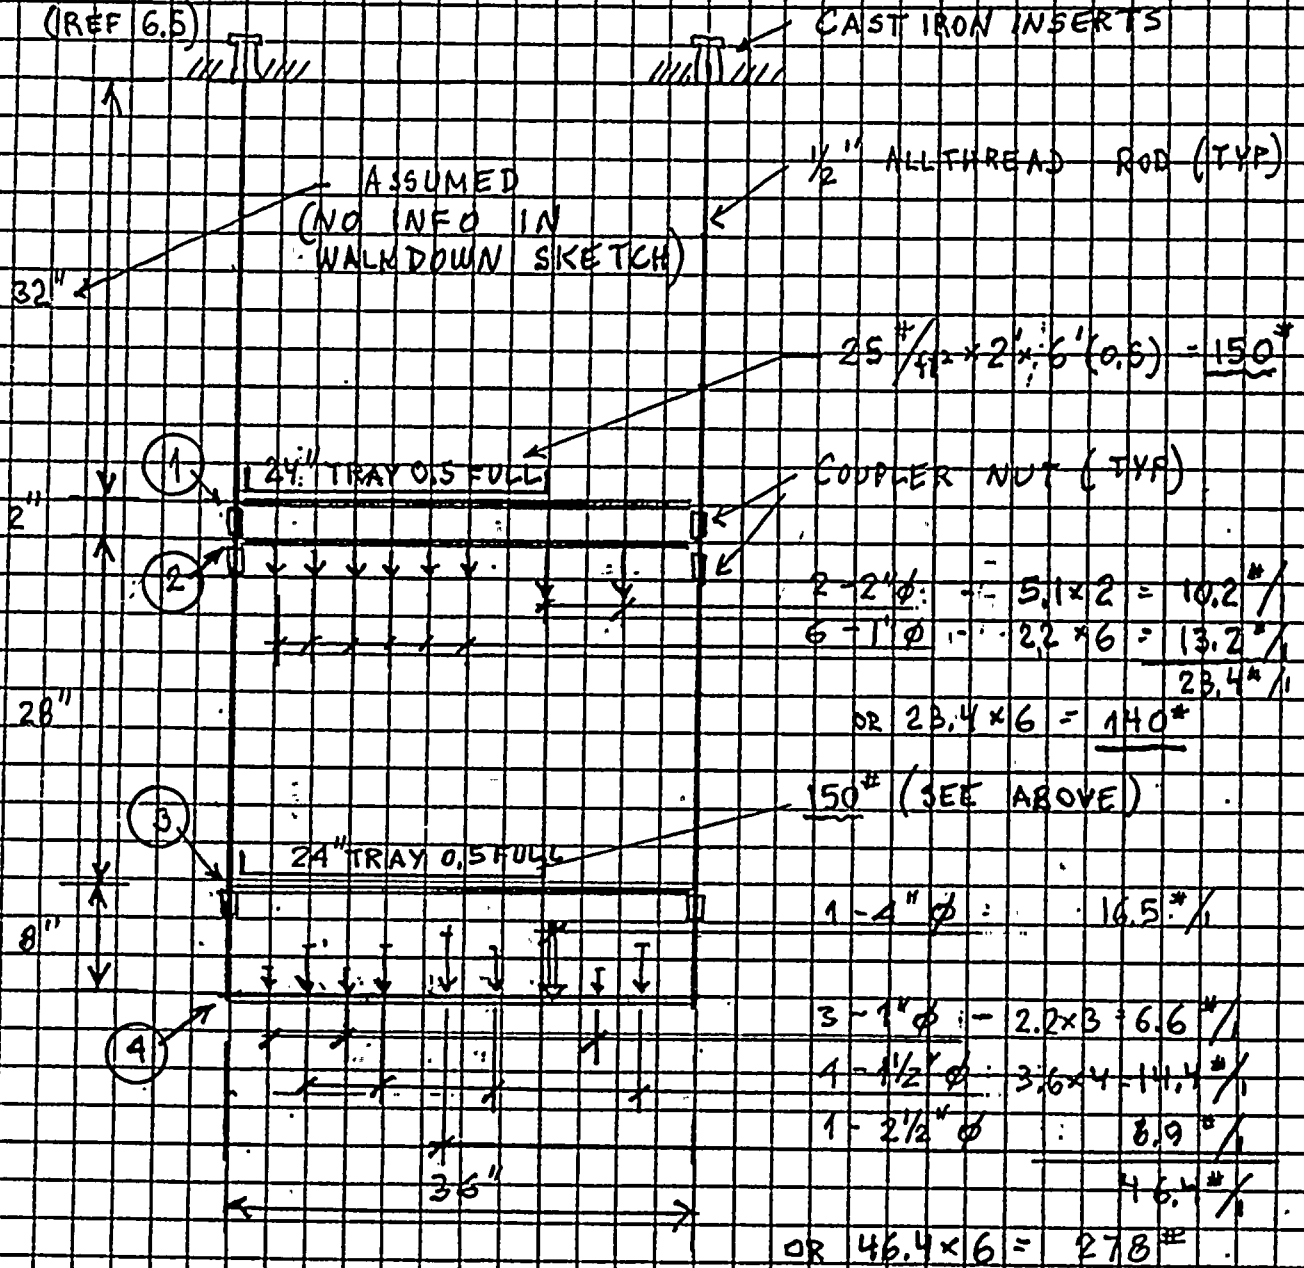 (REF 6.5)
CAST IRON INSERTS
1/2" ALLTHREAD ROD (TYP)
ASSUMED
(NO INFO IN
WALKDOWN SKETCH)
32"
25 #/ft² × 2' × 6' (0.5) = 150#
1
24" TRAY 0.5 FULL
COUPLER NUT (TYP)
2"
2
2 - 2"ø - 5.1×2 = 10.2 #/'
6 - 1"ø - 2.2×6 = 13.2 #/'
23.4 #/'
28"
OR 23.4×6 = 140#
150# (SEE ABOVE)
3
24" TRAY 0.5 FULL
1 - 4"ø 16.5 #/'
8"
3 - 1"ø - 2.2×3 = 6.6 #/'
4
4 - 1 1/2"ø 3.6×4 = 14.4 #/'
1 - 2 1/2"ø 8.9 #/'
46.4 #/'
36"
OR 46.4×6 = 278#